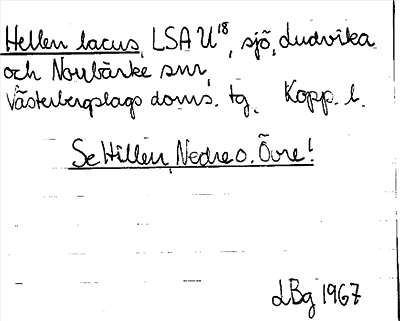 Hellen lacus, LSA U18, sjö, Ludvika
och Norrbärke snr,
Västerbergslags doms. tg. Kopp. l.
Se Hillen, Nedre o. Övre!
LBg 1967